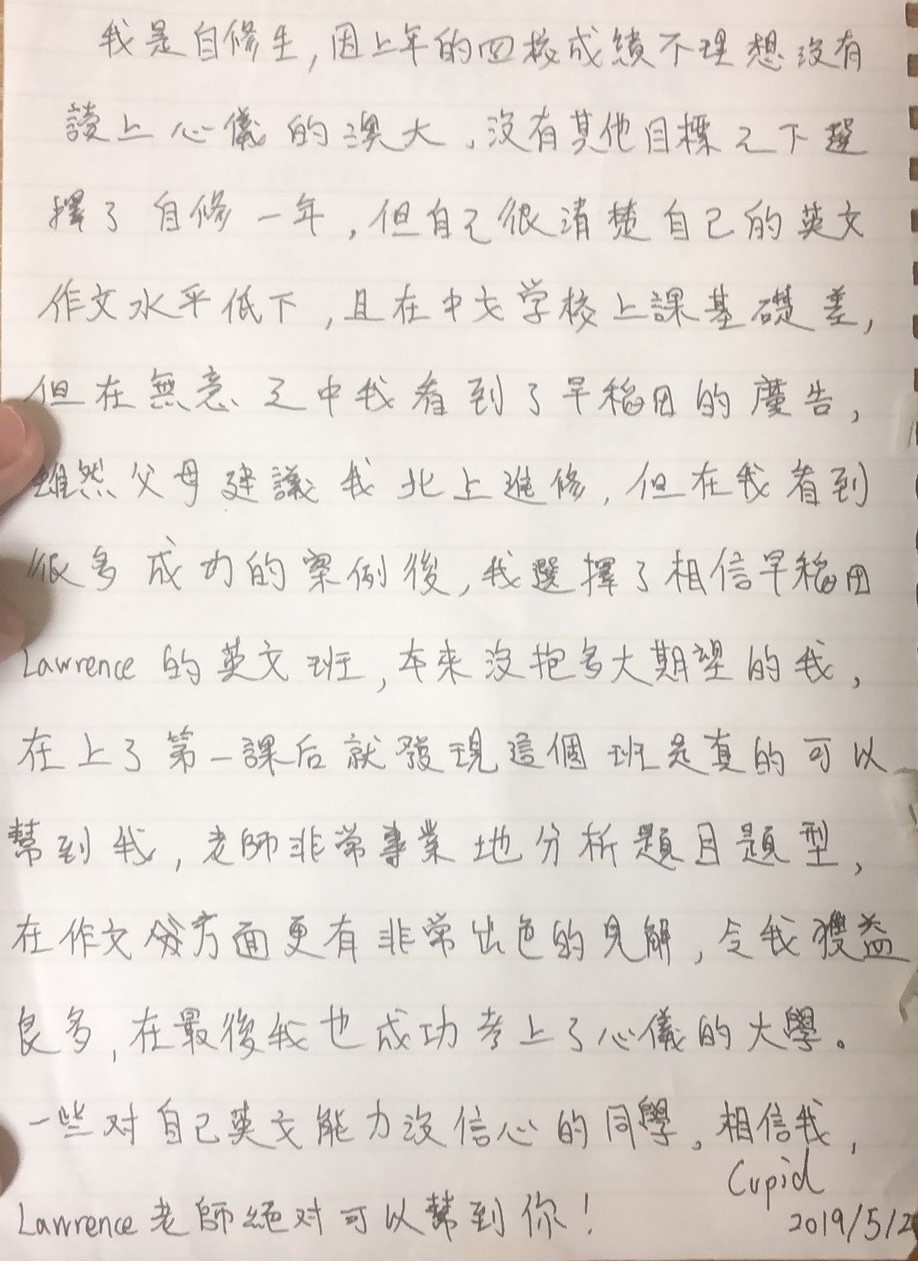 我是自修生,因上年的四校成績不理想沒有
讀上心儀的澳大,沒有其他目標之下選
擇了自修一年,但自己很清楚自己的英文
作文水平低下,且在中文学校上課基礎差,
但在無意之中我看到了早稻田的廣告,
雖然父母建議我北上進修,但在我看到
很多成功的案例後,我選擇了相信早稻田
Lawrence的英文班,本來沒抱多大期望的我,
在上了第一課后就發現這個班是真的可以
幫到我,老師非常專業地分析題目題型,
在作文方面更有非常出色的見解,令我獲益
良多,在最後我也成功考上了心儀的大學。
一些对自己英文能力沒信心的同學,相信我,
Lawrence老師絕对可以幫到你!
Cupid
2019/5/2